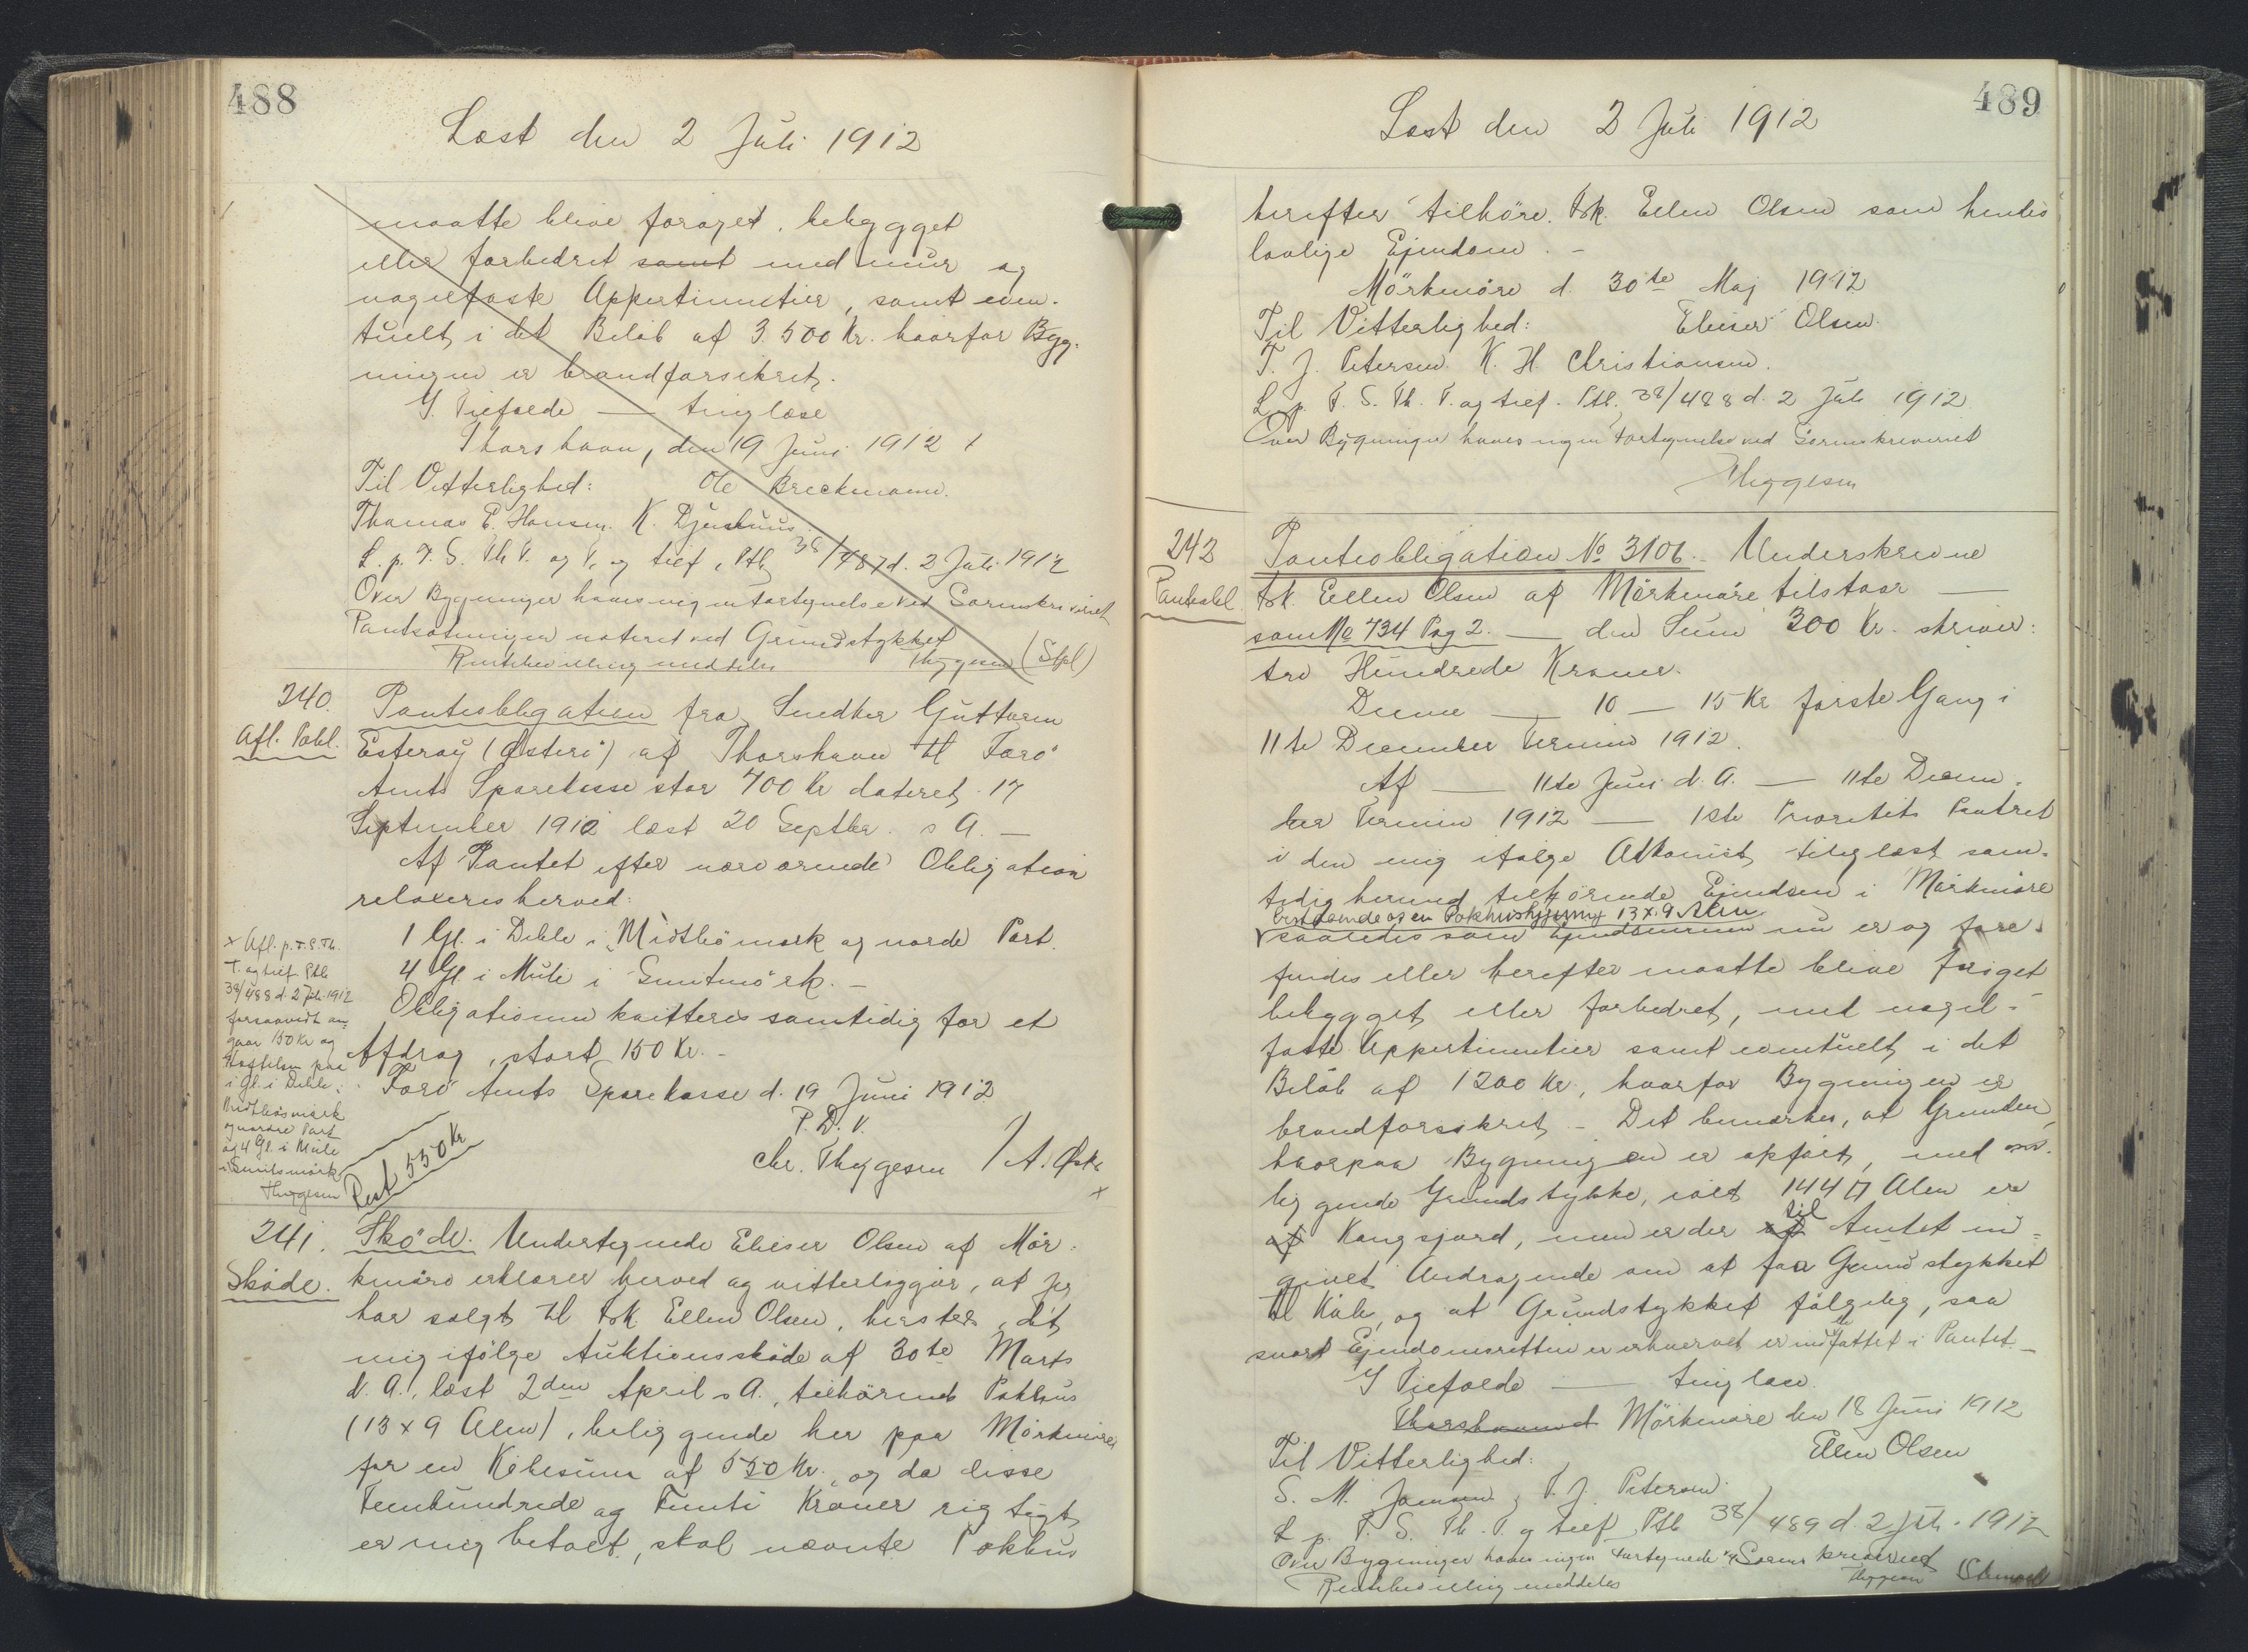 488
Læst den 2 Juli 1912
maatte blive forøget, bebygget
eller forbedret samt med mur og
nagelfaste Appertinentier, samt even-
tuelt i det Beløb af 3.500 Kr. hvorfor Byg-
ningen er brandforsikret.
G. Piefoede — tinglæse
Thorshavn, den 19 Juni 1912
Til Vitterlighed: Ole Breckmann.
Thomas P. Hansen. K. Djurhuus.
L. p. F. S. Th. T. og tilf. Ptb. 38/487 d. 2 Juli 1912
Over Bygninger haves ingen Fortegnelse ved Sorenskriveriet
Pantsætningen noteret ved Grundstykket
Rentebevilling meddeles Thygesen (Stpl)
240.
Afl. Pobl.
Panteobligation fra Snedker Guttorm
Esterøy (Østerö) af Thorshavn til Færö
Amts Sparekasse stor 700 Kr dateret 17
September 1910 læst 20 Septbr. s A. —
Af Pantet efter nærværende Obligation
relaxeres herved:
1 Gl. i Deble i Midtbömark og nordre Part.
4 Gl. i Mule i Suntmörk. —
Obligationen kvitteres samtidig for et
Afdrag, stort 150 Kr. —
Færö Amts Sparekasse d. 19 Juni 1912
P. D. V.
Chr. Thygesen / A.
+
+ Afl. p. F. S. Th.
T. og tilf. Ptb
38/488 d. 2 Juli 1912
forsaavidt an-
gaar 150 Kr og
Hæftelsen paa
1 Gl. i Deble i
Midtbösmark
og nordre Part
og 4 Gl. i Mule
i Suntsmörk
Thygesen
Rest 550 Kr
241.
Skøde.
Sköde. Undertegnede Elieser Olsen af Mör-
kenöre erklærer herved og vitterliggör, at jeg
har solgt til Frk Ellen Olsen, hersteds, det
mig ifölge Auktionsskøde af 30te Marts
d. A., læst 2den April s A., tilhörende Pakhus
(13 x 9 Alen), beliggende her paa Mörkenöre
for en Köbesum af 550 Kr. og da disse
Femhundrede og Femti Kroner rigtigt
er mig betalt, skal nævnte Pakhus
489
Læst den 2 Juli 1912
herefter tilhöre Frk. Ellen Olsen som hendes
lovlige Ejendom. —
Mörkenöre d. 30te Maj 1912
Til Vitterlighed: Elieser Olsen.
T. J. Petersen. K. H. Christiansen.
L. p. F. S. Th. T. og tilf. Ptb. 38/488 d. 2 Juli 1912
Over Bygninger haves ingen Fortegnelse ved Sorenskriveriet
Thygesen
242
Panteobl.
Panteobligation No 3106. Underskrevne
Frk. Ellen Olsen af Mörkenöre tilstaar —
som No 734 Pag 2. — den Sum 300 Kr. skriver:
tre Hundrede Kroner.
Denne — 10 — 15 Kr förste Gang i
11te December Termin 1912.
Af — 11te Juni d. A. — 11te Decem-
ber Termin 1912 — 1ste Prioritets Panteret
i den mig ifølge Adkomst, tinglæst sam-
tidig hermed tilhörende Ejendom i Mörkenöre
bestaaende af en Pakhusbygning 13 x 9 Alen
saaledes som Ejendommen nu er og fore-
findes eller herefter maatte blive foröget
bebygget eller forbedret, med nagel-
faste Appertinentier samt eventuelt i det
Belöb af 1200 Kr., hvorfor Bygningen er
brandforsikret. — Det bemærkes, at Grunden,
hvorpaa Bygningen er opfört, med om-
liggende Grundstykke, ialt 144 □ Alen er
af Kongsjord, men er der af til Amtet ind-
givet Andragende om at faa Grundstykket
til Köb, og at Grundstykket fölgelig, saa
snart Ejendomsretten er erhvervet er indbefattet i Pantet. —
G Piefoede — tinglæse.
Thorshavn d Mörkenöre den 18 Juni 1912
Til Vitterlighed: Ellen Olsen
S. M. Joensen, T. J. Petersen.
L p. F. S. Th. T. og tilf. Ptb 38/489 d. 2 Juli 1912
Over Bygninger haves ingen Fortegnelse v/ Sorenskriveriet
Rentebevilling meddeles Thygesen (Stempel)